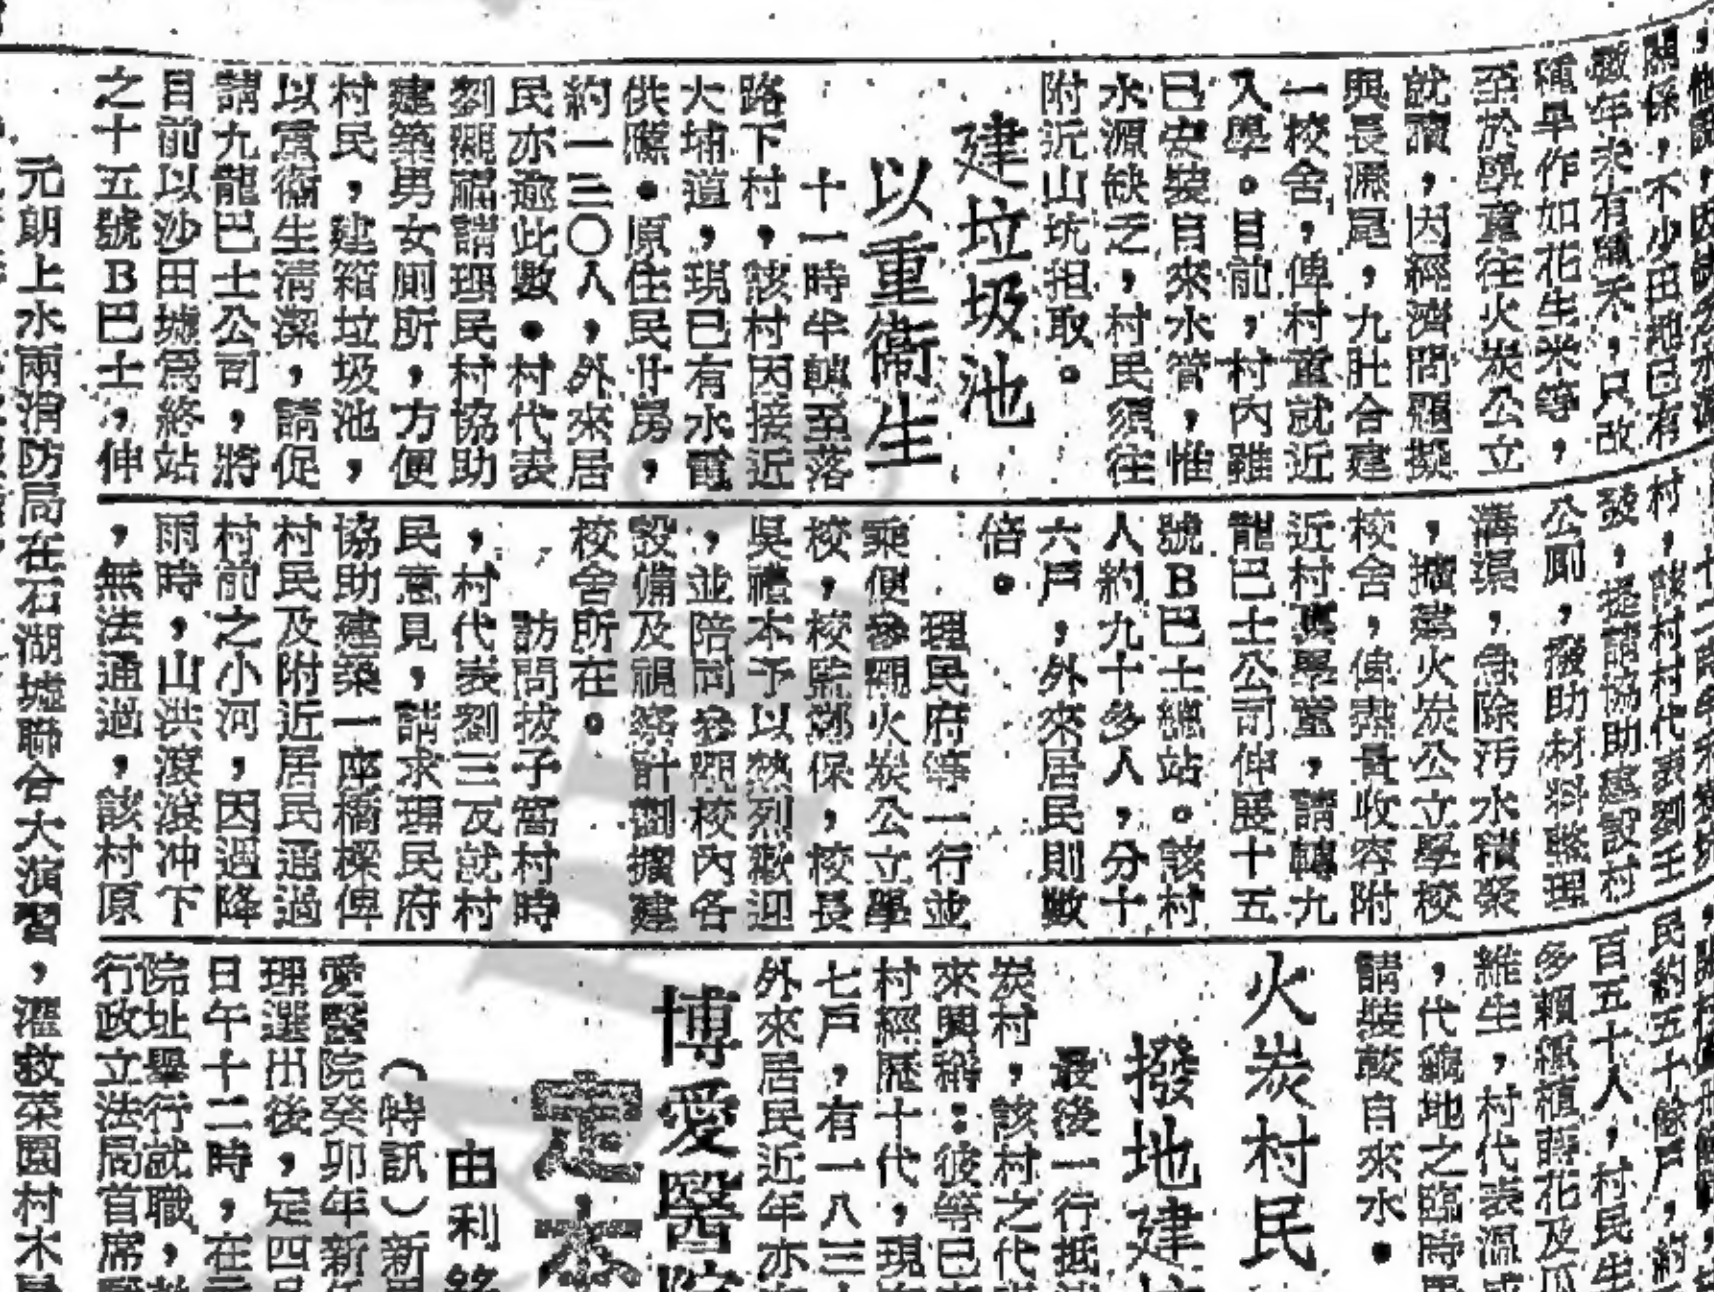 關係，不少田地已有
種旱作如花生米等，
至於學童往火炭公立
就讀，因經濟問題擬
與長瀝尾，九肚合建
一校舍，俾村童就近
入學。目前，村內雖
已安裝自來水管，惟
水源缺乏，村民須往
附近山坑担取。
建垃圾池
以重衞生
十一時半轉至落
路下村，該村因接近
大埔道，現已有水電
供應。原住民廿房，
約一三〇人，外來居
民亦逾此數。村代表
劉觀福請理民村協助
建築男女厠所，方便
村民，建箱垃圾池，
以重衞生清潔，請促
請九龍巴士公司，將
目前以沙田墟爲終站
之十五號B巴士，伸
村，該村村代表劉王
發，提請協助建設村
公厠，撥助材料整理
溝渠，免除污水積聚
，擴建火炭公立學校
校舍，俾盡量收容附
近村莊學童，請轉九
龍巴士公司伸展十五
號B巴士總站。該村
人約九十多人，分十
六戶，外來居民則數
倍。
理民府等一行並
乘便參觀火炭公立學
校，校監鄧保，校長
吳禮本予以熱烈歡迎
，並陪同參觀校內各
設備及視察計劃擴建
校舍所在。
訪問拔子窩村時
，村代表劉三友就村
民意見，請求理民府
協助建築一座橋樑俾
村民及附近居民通過
村前之小河，因遇降
雨時，山洪滾滾冲下
，無法通過，該村原
民約五十餘戶，約
百五十人，村民生
多賴種植薛花及瓜
維生，村代表溫
，代鷄地之臨時
請裝較自來水。
火炭村民
撥地建
最後一行抵
炭村，該村之代
來興稱：彼等已
村經歷十代，現
七戶，有一八三
外來居民近年亦
博愛醫院
定本
由利銘
（特訊）新
愛醫院癸卯年新
理選出後，定四月
日午十二時，在元
院址舉行就職，
行政立法局首席
元朗上水兩消防局在石湖墟聯合大演習，灌救菜園村木